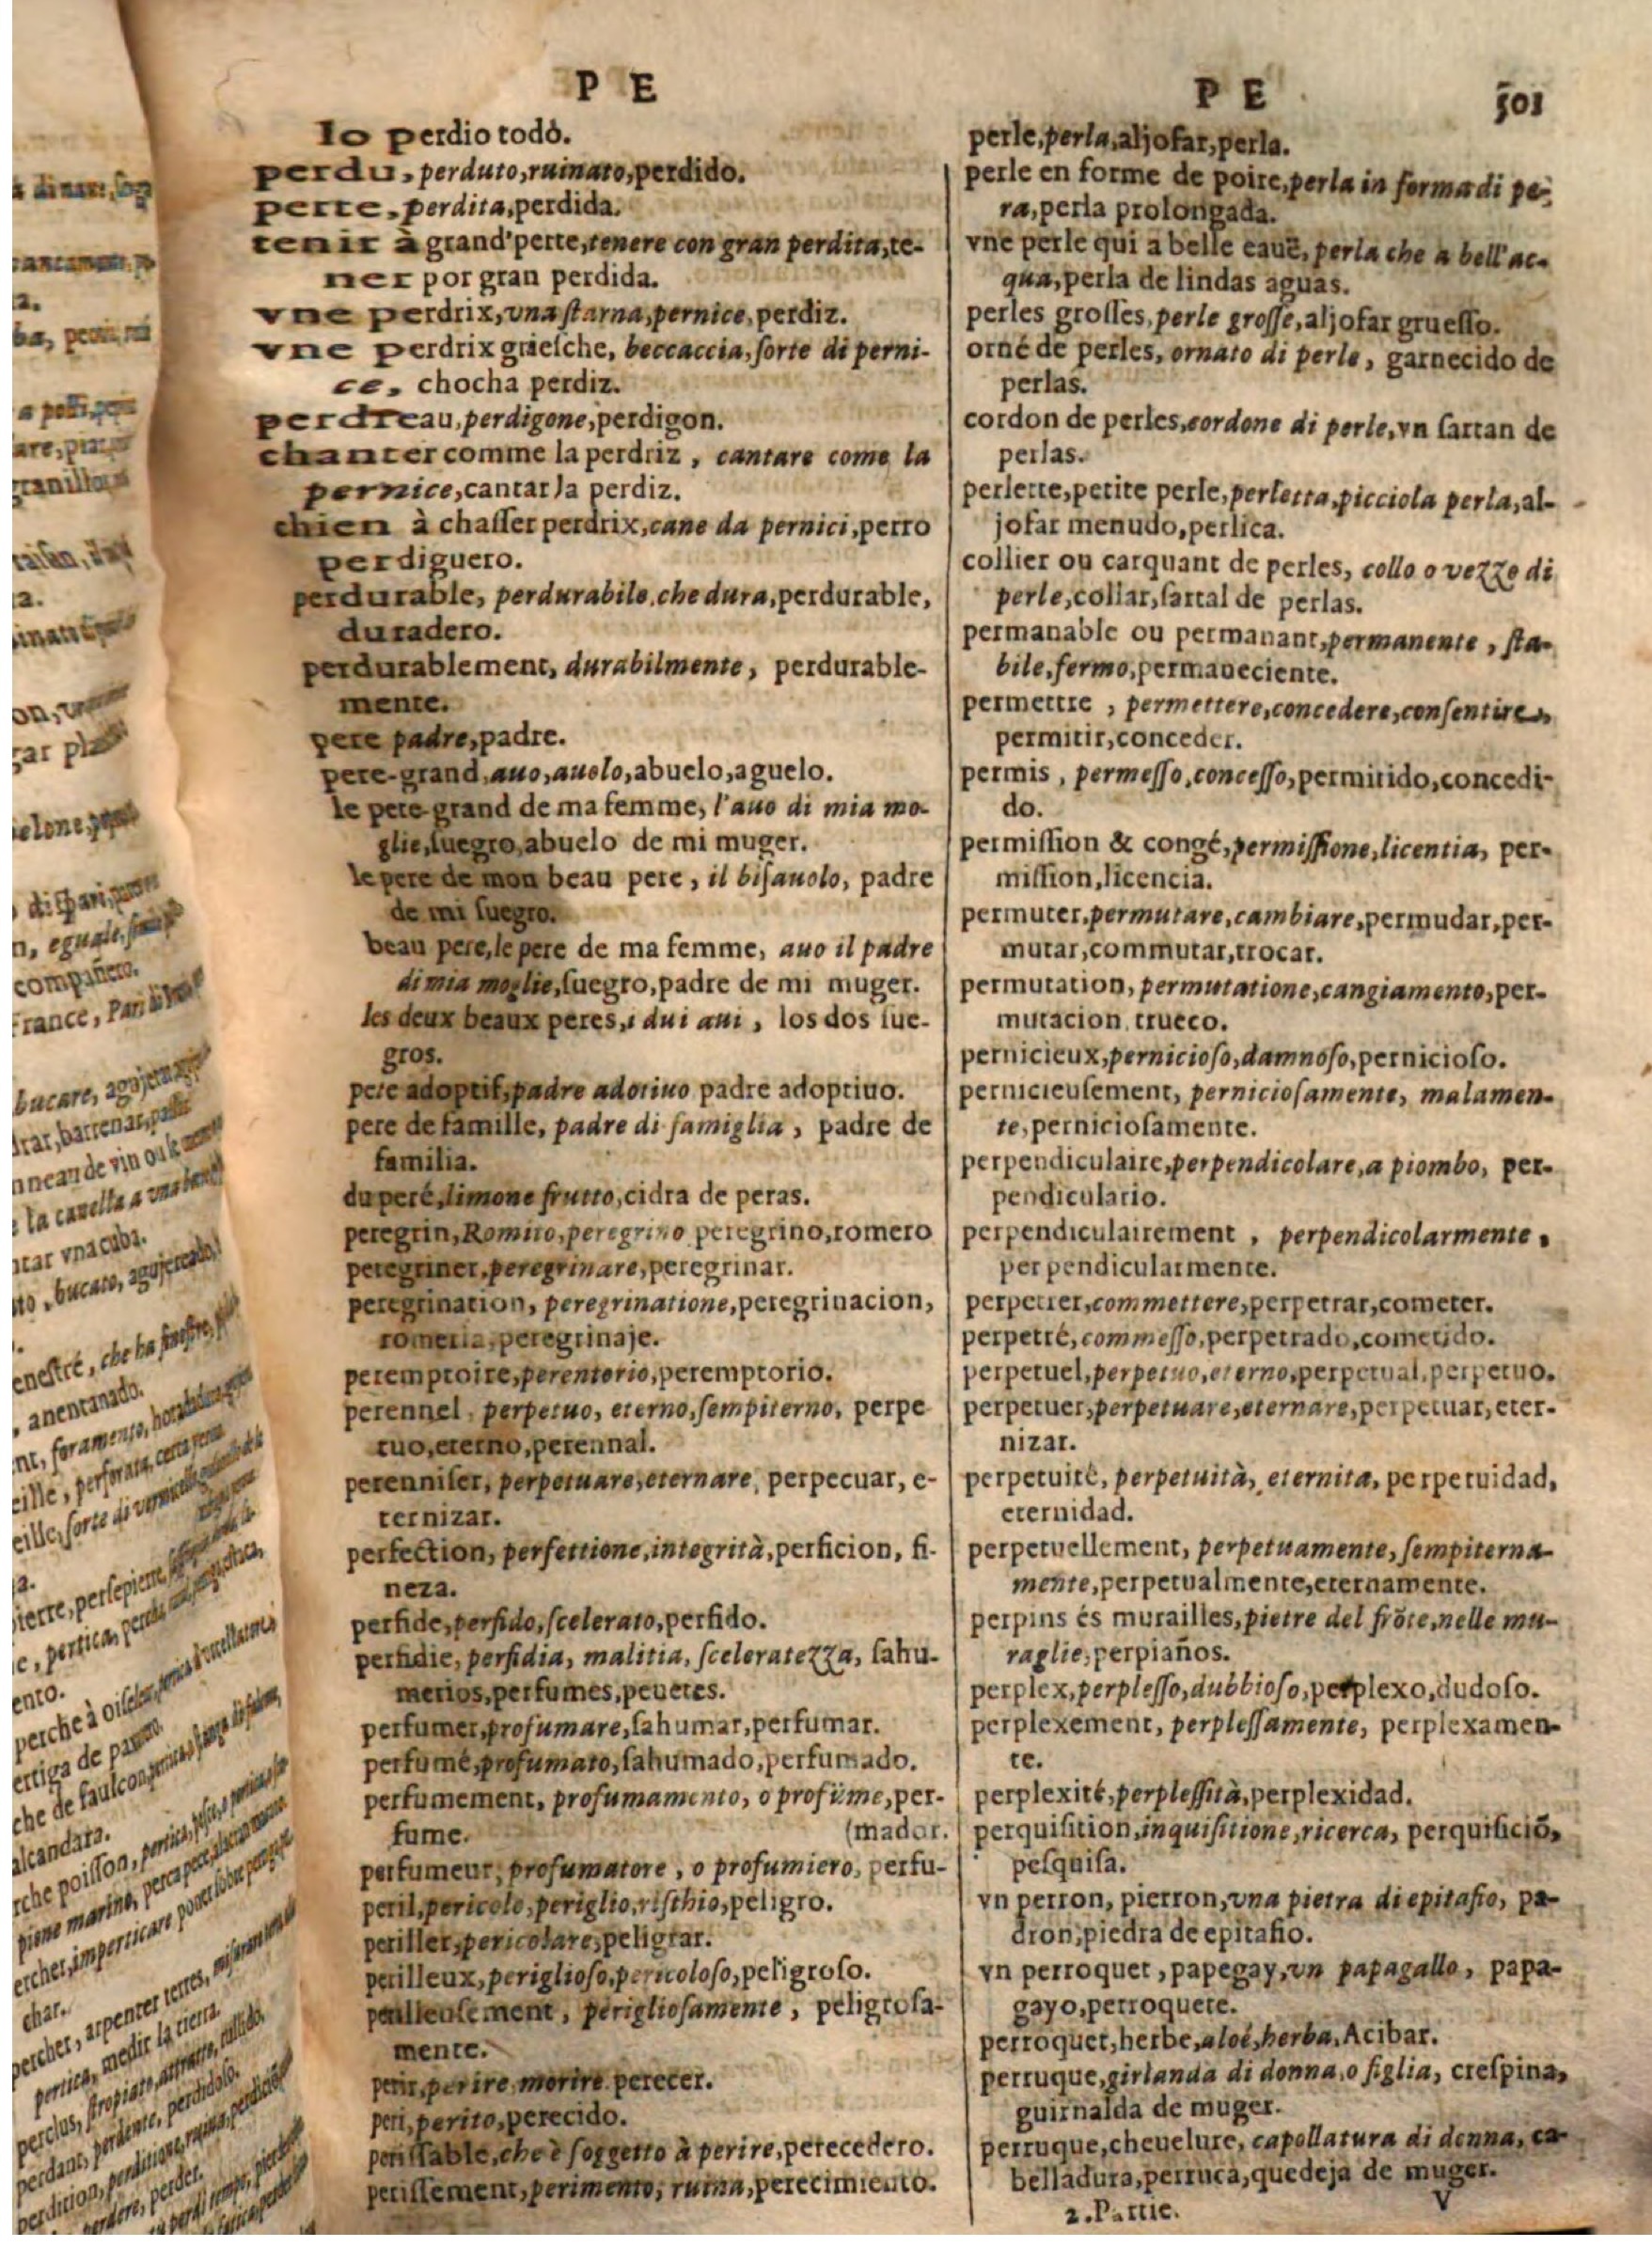 P E
Io perdio todò.
perdu, perduto,ruinato,perdido.
perte, perdita,perdida.
tenir à grand'perte,tenere con gran perdita,te-
ner por gran perdida.
vne perdrix,vna ſtarna,pernice,perdiz.
vne perdrix grieſche, beccaccia,ſorte di perni-
ce, chocha perdiz.
perdreau,perdigone,perdigon.
chanter comme la perdriz, cantare come la
pernice,cantar la perdiz.
chien à chaſſer perdrix,cane da pernici,perro
perdiguero.
perdurable, perdurabile,che dura,perdurable,
duradero.
perdurablement, durabilmente, perdurable-
mente.
pere padre,padre.
pere-grand,auo,auolo,abuelo,aguelo.
le pere-grand de ma femme, l'auo di mia mo-
glie,ſuegro,abuelo de mi muger.
le pere de mon beau pere, il biſauolo, padre
de mi ſuegro.
beau pere,le pere de ma femme, auo il padre
di mia moglie,ſuegro,padre de mi muger.
les deux beaux peres,i dui aui, los dos ſue-
gros.
pere adoptif,padre adotiuo padre adoptiuo.
pere de famille, padre di famiglia, padre de
familia.
du peré,limone frutto,cidra de peras.
peregrin,Romito,peregrino peregrino,romero
peregriner,peregrinare,peregrinar.
peregrination, peregrinatione,peregrinacion,
romeria,peregrinaje.
peremptoire,perentorio,peremptorio.
perennel, perpetuo, eterno,ſempiterno, perpe
tuo,eterno,perennal.
perenniſer, perpetuare,eternare, perpecuar, e-
ternizar.
perfection, perfettione,integrità,perficion, fi-
neza.
perfide,perfido,ſcelerato,perfido.
perfidie, perfidia, malitia, ſceleratezza, ſahu-
merios,perfumes,peuetes.
perfumer,profumare,ſahumar,perfumar.
perfumé,profumato,ſahumado,perfumado.
perfumement, profumamento, o profume,per-
fume. (mador.
perfumeur, profumatore, o profumiero, perfu-
peril,pericolo,periglio,riſthio,peligro.
periller,pericolare,peligrar.
perilleux,periglioſo,pericoloſo,peligroſo.
perilleuſement, periglioſamente, peligroſa-
mente.
perir,perire,morire perecer.
peri,perito,perecido.
periſſable,che è ſoggetto à perire,perecedero.
periſſement,perimento, ruina,perecimiento.
P E 501
perle,perla,aljofar,perla.
perle en forme de poire,perla in forma di pe-
ra,perla prolongada.
vne perle qui a belle eauë, perla che a bell'ac-
qua,perla de lindas aguas.
perles groſſes,perle groſſe,aljofar grueſſo.
orné de perles, ornato di perle, garnecido de
perlas.
cordon de perles,cordone di perle,vn ſartan de
perlas.
perlette,petite perle,perletta,picciola perla,al-
jofar menudo,perlica.
collier ou carquant de perles, collo o vezzo di
perle,collar,ſartal de perlas.
permanable ou permanant,permanente, ſta-
bile,fermo,permaueciente.
permettre, permettere,concedere,conſentire,
permitir,conceder.
permis, permeſſo,conceſſo,permitido,concedi-
do.
permiſſion & congé,permiſſione,licentia, per-
miſſion,licencia.
permuter,permutare,cambiare,permudar,per-
mutar,commutar,trocar.
permutation, permutatione,cangiamento,per-
mutacion trueco.
pernicieux,pernicioſo,damnoſo,pernicioſo.
pernicieuſement, pernicioſamente, malamen-
te,pernicioſamente.
perpendiculaire,perpendicolare,a piombo, per-
pendiculario.
perpendiculairement, perpendicolarmente,
perpendicularmente.
perpetrer,commettere,perpetrar,cometer.
perpetré,commeſſo,perpetrado,cometido.
perpetuel,perpetuo,eterno,perpetual,perpetuo.
perpetuer,perpetuare,eternare,perpetuar,eter-
nizar.
perpetuité, perpetuità, eternita, perpetuidad,
eternidad.
perpetuellement, perpetuamente, ſempiterna-
mente,perpetualmente,eternamente.
perpins és murailles,pietre del frõte,nelle mu-
raglie,perpiaños.
perplex,perpleſſo,dubbioſo,perplexo,dudoſo.
perplexement, perpleſſamente, perplexamen-
te.
perplexité,perpleſſità,perplexidad.
perquiſition,inquiſitione,ricerca, perquiſiciõ,
peſquiſa.
vn perron, pierron,vna pietra di epitafio, pa-
dron,piedra de epitafio.
vn perroquet, papegay,vn papagallo, papa-
gayo,perroquete.
perroquet,herbe,aloé,herba,Acibar.
perruque,girlanda di donna,o figlia, creſpina,
guirnalda de muger.
perruque,cheuelure, capollatura di donna, ca-
belladura,perruca,quedeja de muger.
2.Partie. V